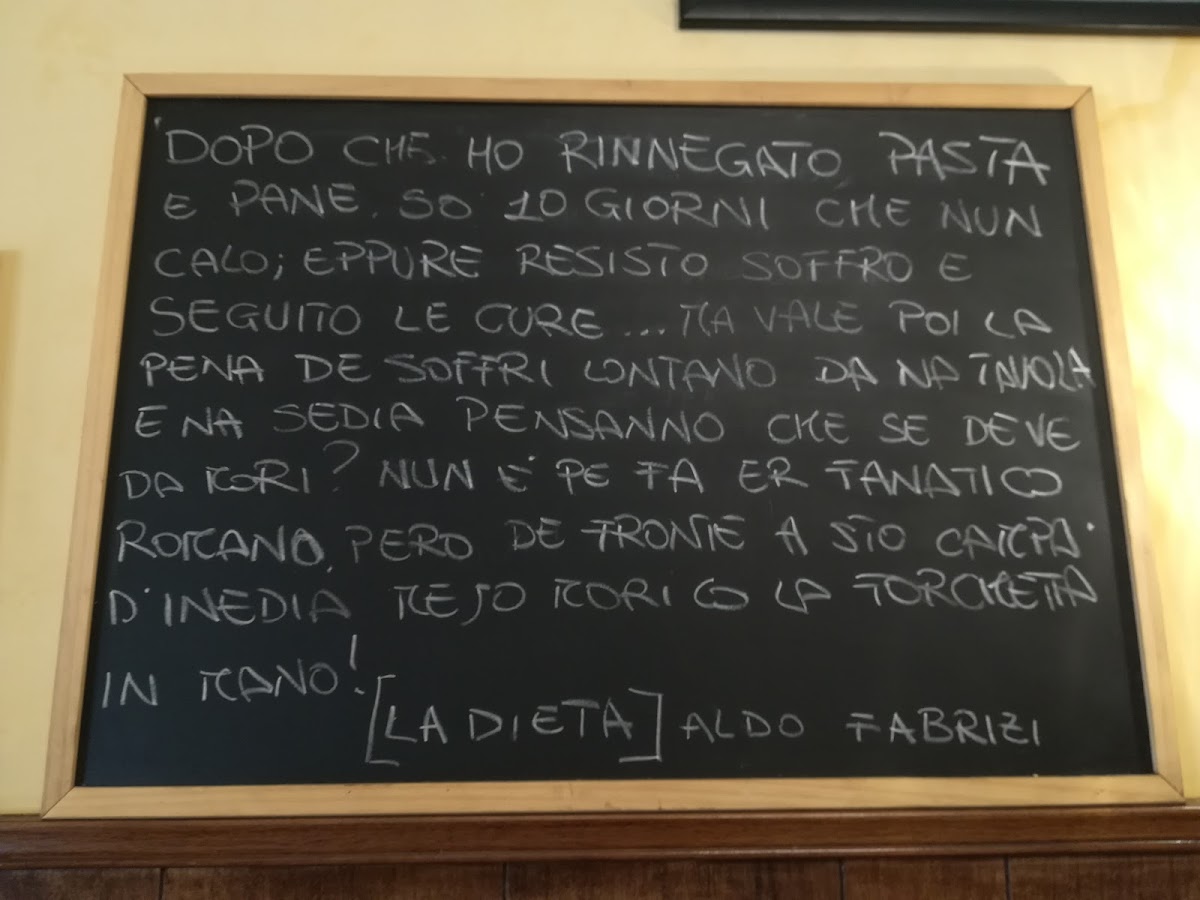 DOPO CHE HO RINNEGATO PASTA
E PANE. SO 10 GIORNI CHE NUN
CALO; EPPURE RESISTO SOFFRO E
SEGUITO LE CURE ... MA VALE POI LA
PENA DE SOFFRI LONTANO DA NA TAVOLA
E NA SEDIA PENSANNO CHE SE DEVE
DA MORI? NUN È PE FA ER FANATICO
ROMANO, PERO DE FRONTE A STO CAMPA'
D'INEDIA MEJO MORI CO LA FORCHETTA
IN MANO!
[LA DIETA] ALDO FABRIZI